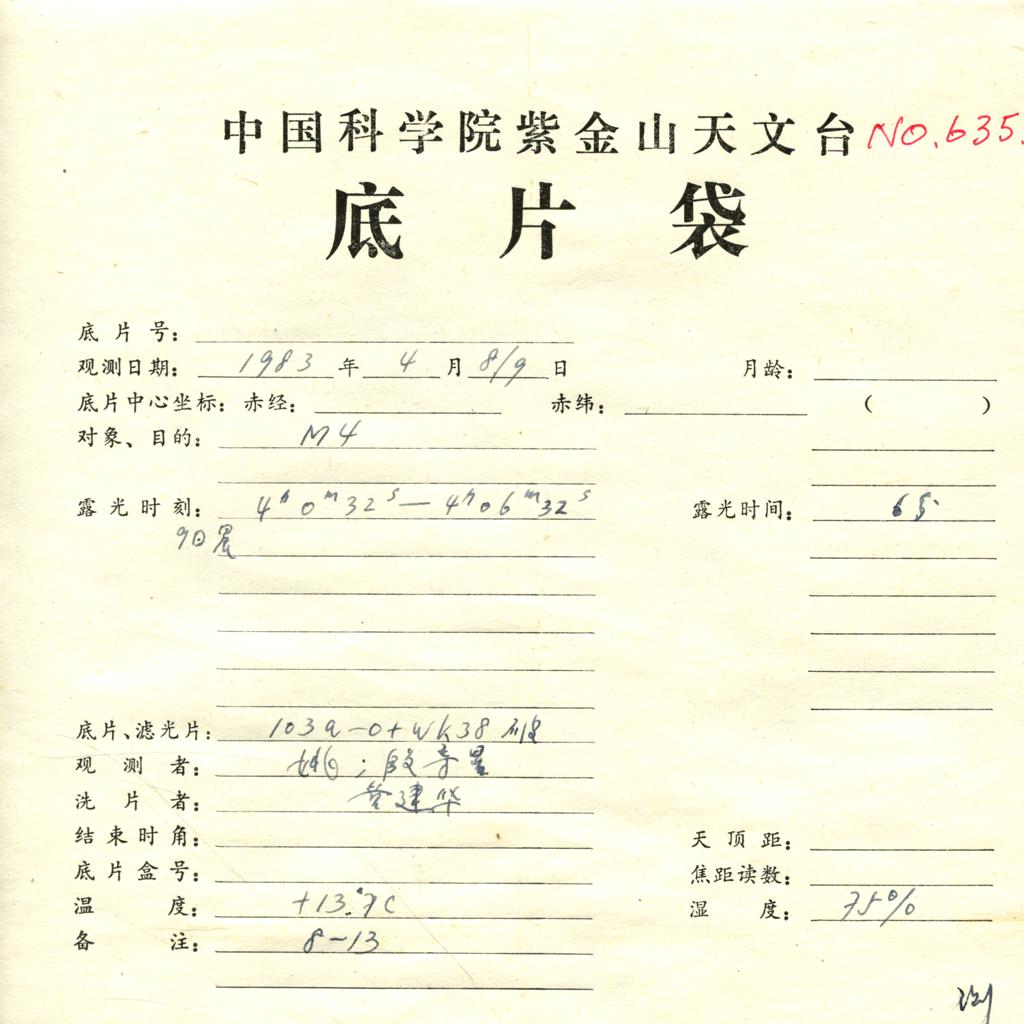 中国科学院紫金山天文台 NO.635
底片袋
底片号：
观测日期： 1983 年 4 月 8/9 日 月龄：
底片中心坐标：赤经： 赤纬： （ ）
对象、目的： M4
露光时刻： 4h0m32s—4h06m32s 露光时间： 6分
9日晨
底片、滤光片： 103a-O+WK38
观测者：
洗片者： 建华
结束时角： 天顶距：
底片盒号： 焦距读数：
温度： +13.°7C 湿度： 75%
备注： 8-13